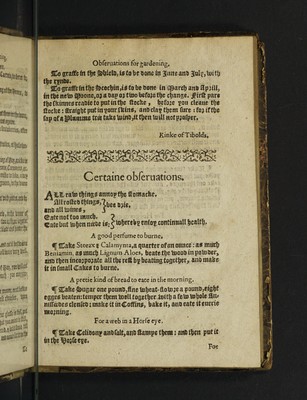 Obseruations for gardening.
To graffe in the Shield, is to be done in June and July, with
the rynde.
To graffe in the Scochin, is to be done in March and Aprill,
in the new Moone, or a day or two before the change. First pare
the skinnes readie to put in the stocke, before you cleaue the
stocke: straight put in your skins, and clay them sure: for if the
sap of a Plumme tree take wind, it then will not prosper.
Certaine obseruations.
ALL raw things annoy the stomacke.
All rosted things,
and all wines, doe drie,
Eate not too much.
Eate but when neede is: whereby enioy continuall health.
A good perfume to burne,
¶ Take Storax Calamynta, a quarter of an ounce: as much
Beniamin, as much Lignum Aloes, beate the wood in powder,
and then incorporate all the rest by beating together, and make
it in small Cakes to burne.
A pretie kind of bread to eate in the morning,
¶ Take Sugar one pound, fine wheat-flowre a pound, eight
egges beaten: temper them well together with a few whole An-
nisseedes clensed: make it in Coffins, bake it, and eate it euerie
morning.
For a web in a Horse eye.
¶ Take Celidony and salt, and stampe them: and then put it
in the Horse eye.
For